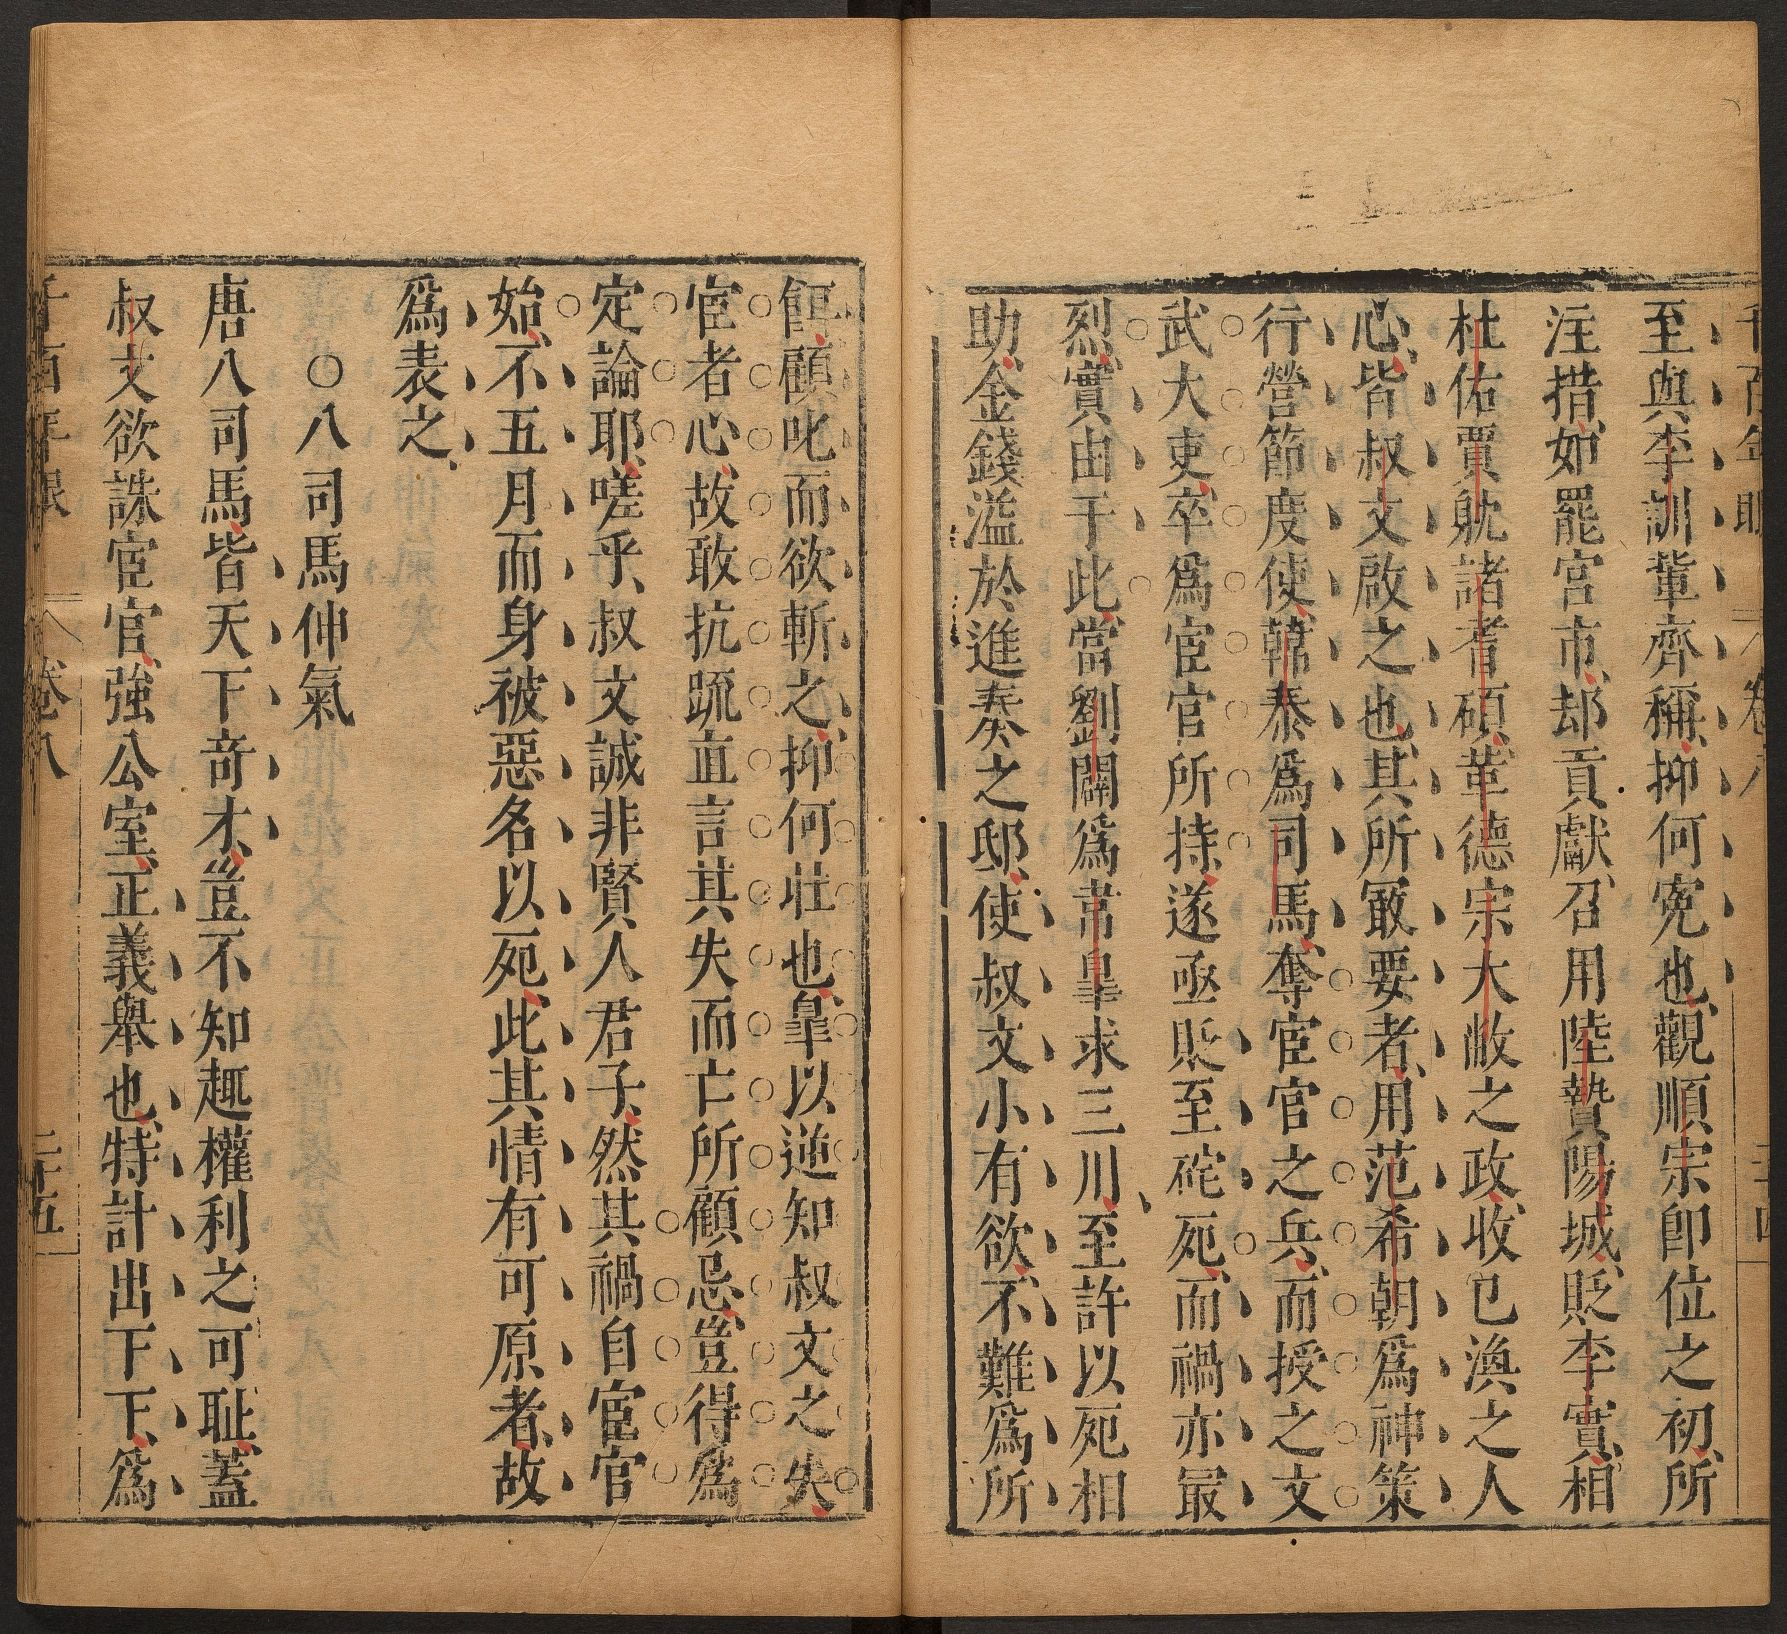 千百年眼 卷八 二十四
至與李訓輩齊稱抑何寃也觀順宗卽位之初所
注措如罷宮市却貢獻召用陸贄陽城貶李實相
杜佑賈躭諸耆碩革德宗大敝之政收已渙之人
心皆叔文啟之也其所最要者用范希朝爲神策
行營節度使韓泰爲司馬奪宦官之兵而授之文
武大吏卒爲宦官所持遂亟貶至死而禍亦最
烈實由于此當劉闢爲韋皐求三川至許以死相
助金錢溢於進奏之邸使叔文小有欲不難爲所
餌顧叱而欲斬之抑何壯也皐以逆知叔文之失
宦者心故敢抗疏直言其失而亡所顧忌豈得爲
定論耶嗟乎叔文誠非賢人君子然其禍自宦官
始不五月而身被惡名以死此其情有可原者故
爲表之
○八司馬伸氣
唐八司馬皆天下奇才豈不知趣權利之可恥蓋
叔文欲誅宦官強公室正義舉也特計出下下爲
千百年眼 卷八 二十五